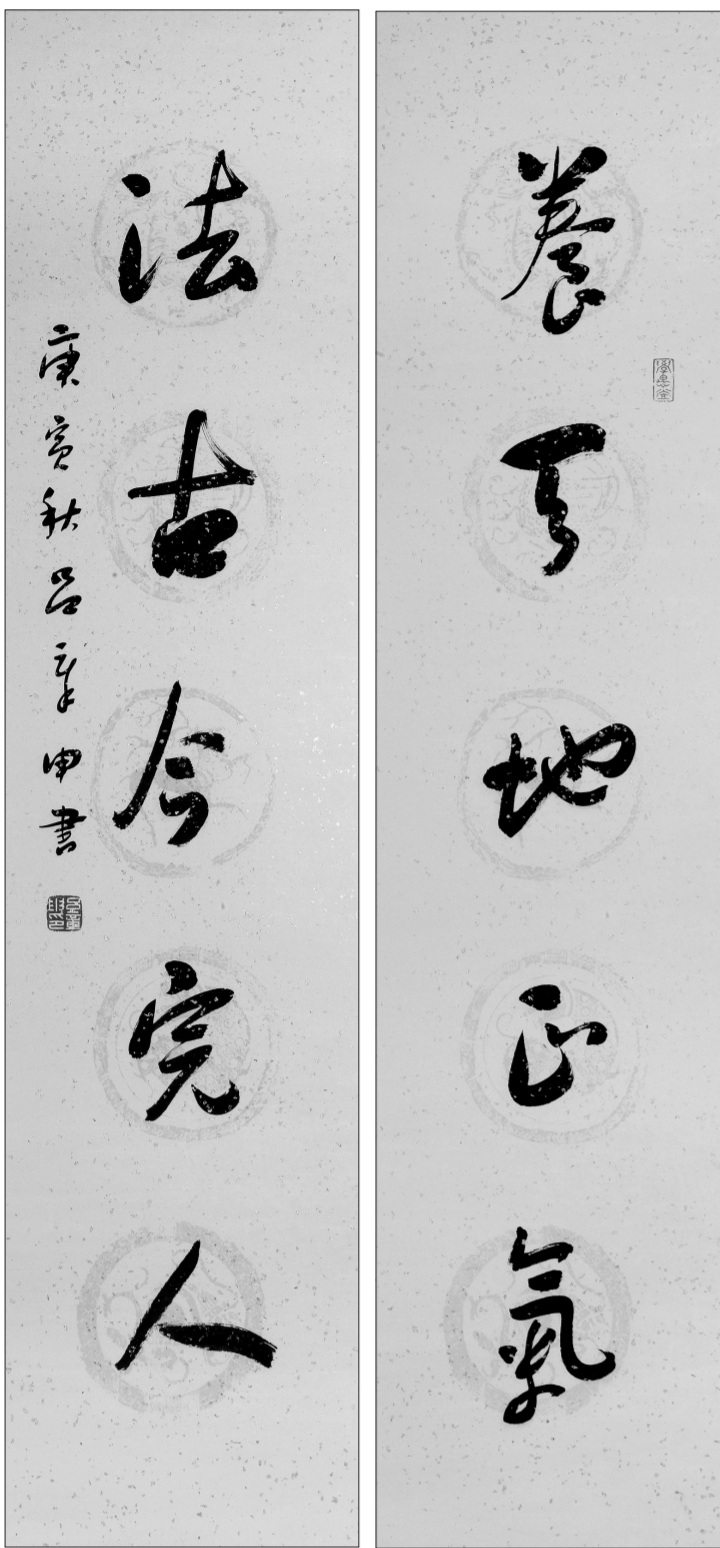 養天地正氣
法古今完人
庚寅秋呂章申書